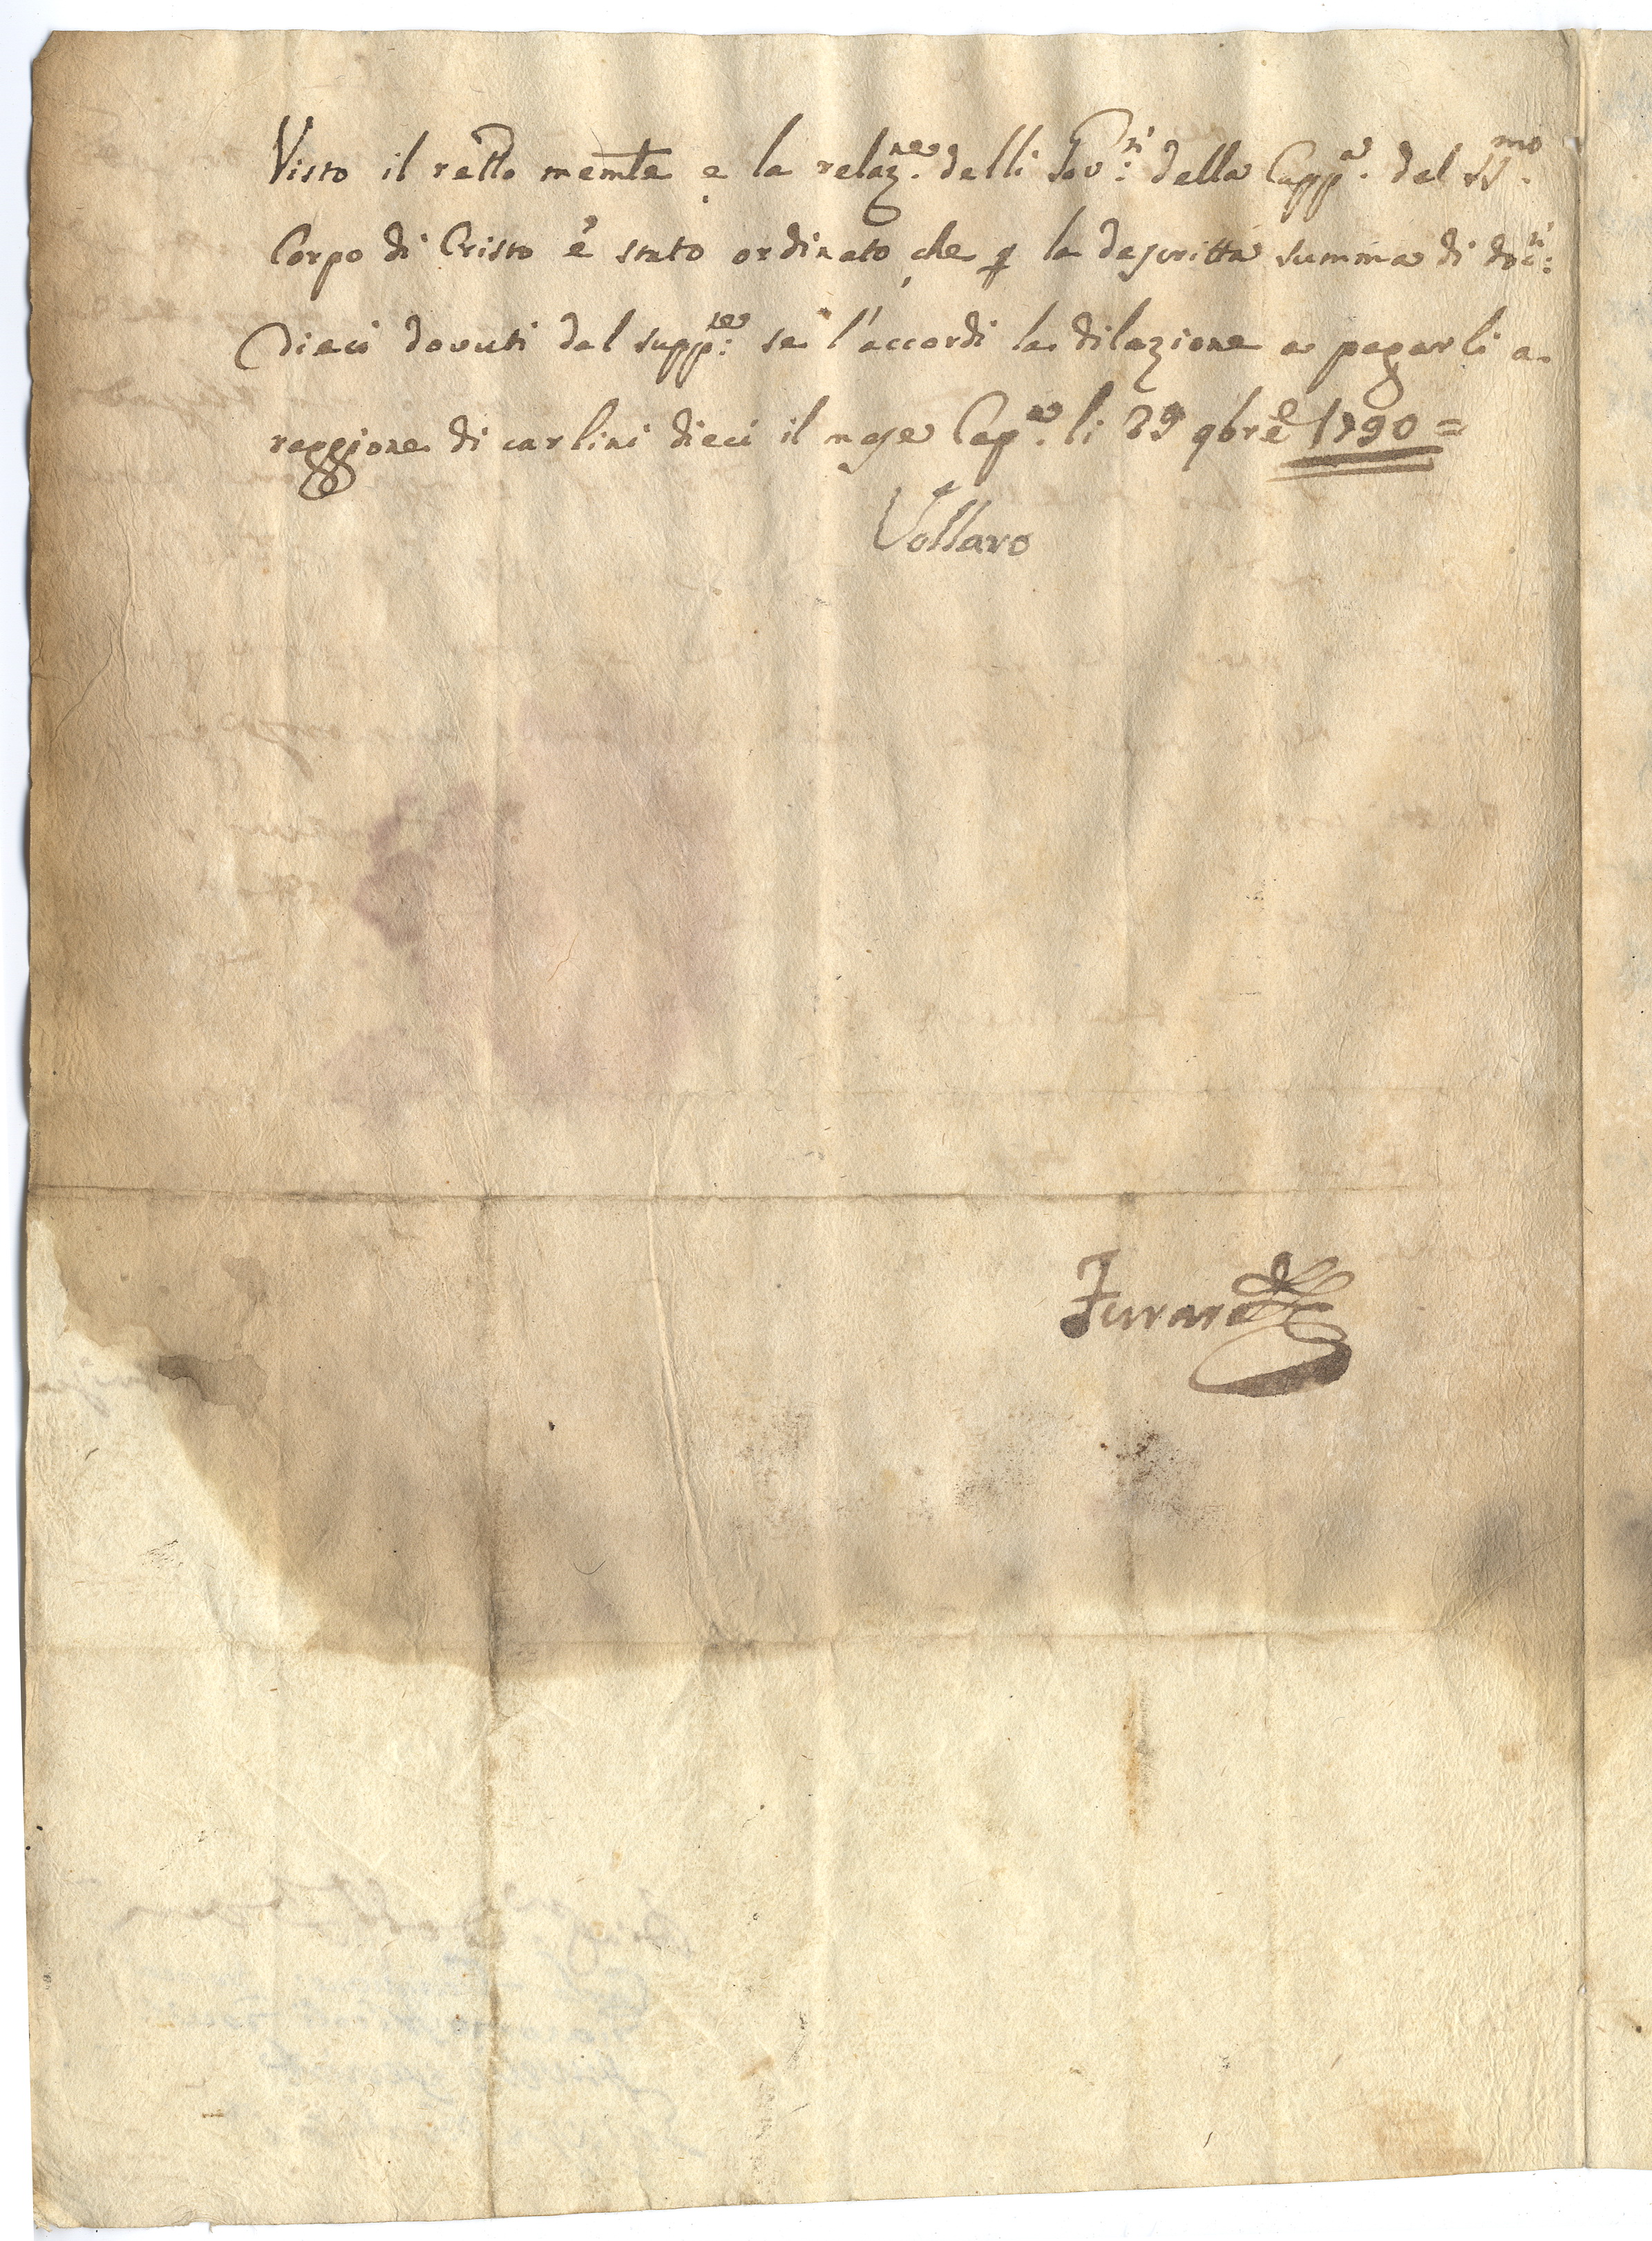 Visto il retto memle e la relaz.ne delli Gov.ri della Capp.a del SS.mo
Corpo di Cristo è stato ordinato, che p la descritta summa di doc.ti
Dieci dovuti dal supp.te se l'accordi la dilazione a pagarli a
raggione di carlini dieci il mese Cap.a li 29 9bre 1790 =
Vollaro